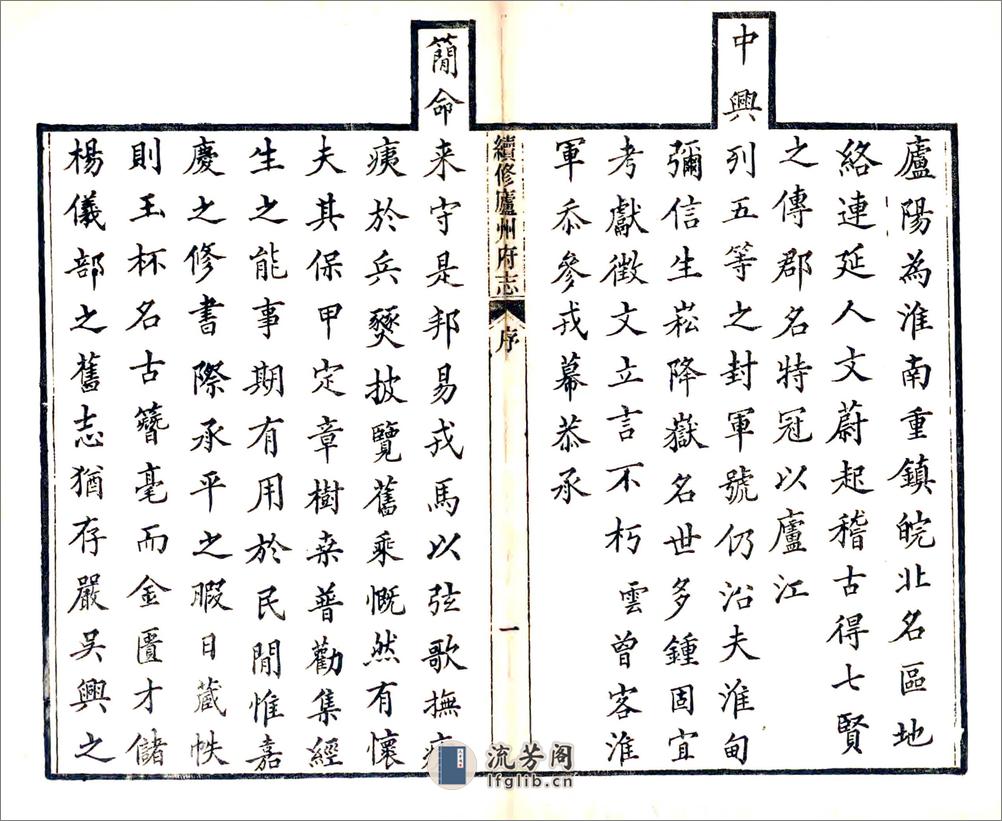 廬陽為淮南重鎮皖北名區地
絡連延人文蔚起稽古得七賢
之傳郡名特冠以廬江
中興列五等之封軍號仍沿夫淮甸
彌信生崧降嶽名世多鍾固宜
考獻徵文立言不朽 雲曾客淮
軍忝參戎幕恭承
續修廬州府志 序 一
簡命来守是邦易戎馬以弦歌撫瘡
痍於兵燹披覽舊乘慨然有懷
夫其保甲定章樹桒普勸集經
生之能事期有用於民閒惟嘉
慶之修書際承平之暇日蕆帙
則玉杯名古簪毫而金匱才儲
楊儀部之舊志猶存嚴吳興之
流芳阁
lfglib.cn